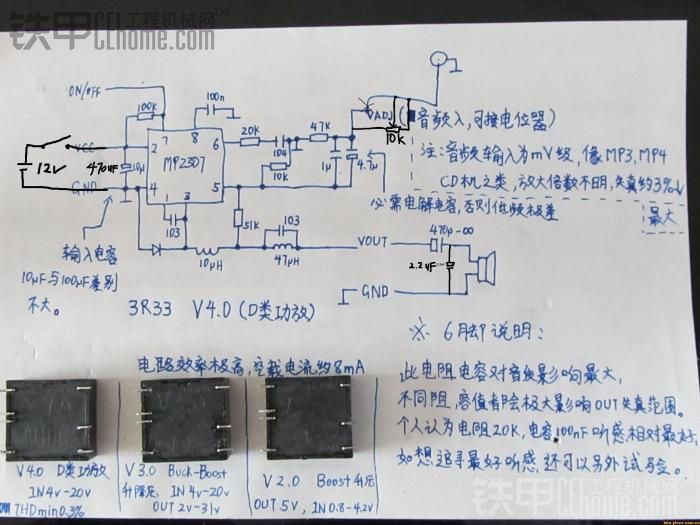 铁甲工程机械网
CEhome.com
ON/OFF
100K
100n
VCC
12V
470uF
10μ
GND
2
7
8
6
MP2307
4
1
3
5
20K
104
10K
47K
1μ
4.7μ
VADJ
10K
(音频入,可接电位器)
注:音频输入为mV级,像MP3,MP4
CD机之类,放大倍数不明,失真约3%
最大
必需电解电容,否则低频极差
103
51K
103
10μH
47μH
VOUT
470μ
2.2uF
GND
输入电容
10μF与100μF差别
不大。
3R33 V4.0(D类功放)
※ 6脚说明:
电路效率极高,空载电流约8mA
此电阻电容对音频影响最大,
不同阻,容值都会极大影响OUT失真范围。
个人认为电阻20K,电容100nF听感相对最好,
如想追寻最好听感,还可以另外试验。
V4.0 D类功放
IN 4V-20V
THDmin0.3%
V3.0 Buck-Boost
升降压 IN 4V-20V
OUT 2V-31V
V2.0 Boost升压
OUT 5V, IN 0.8-4.2V
铁甲工程机械网
CEhome.com